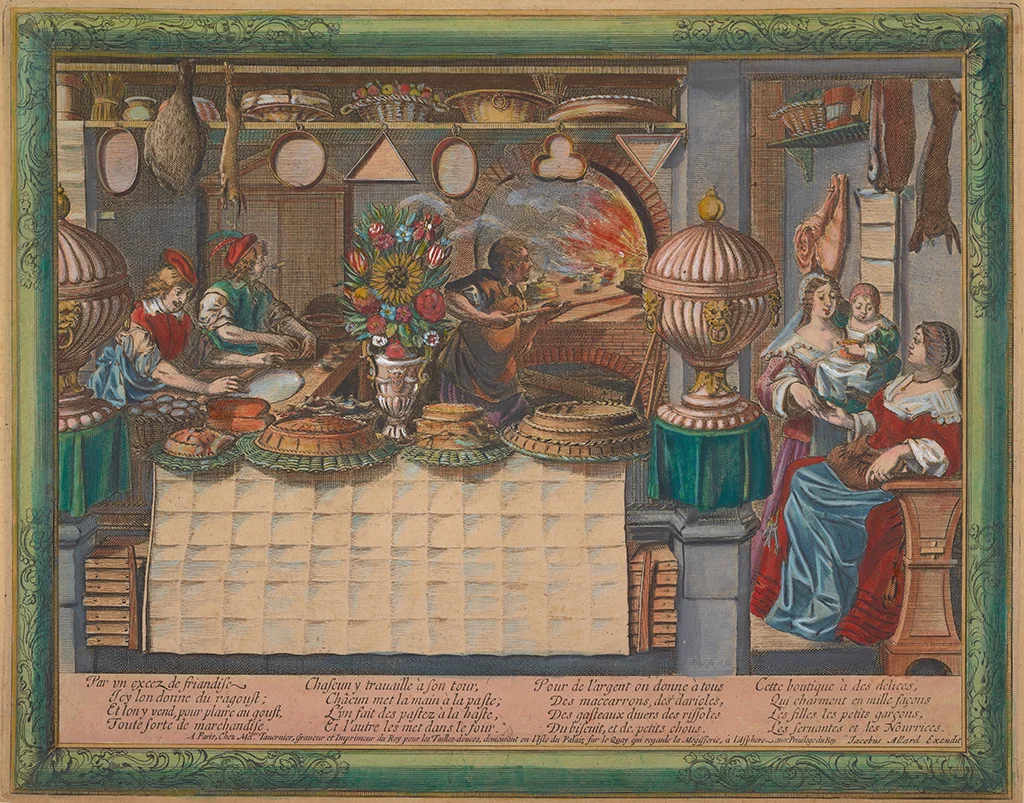 Par vn excez de friandise
Icy l'on donne du ragoust;
Et l'on y vend, pour plaire au goust,
Toute sorte de marchandise.
Chascun y trauaille à son tour,
Chacun met la main à la paste;
L'vn fait des pastez à la haste,
Et l'autre les met dans le four.
Pour de l'argent on donne à tous
Des maccarrons, des darioles,
Des gasteaux diuers des rissoles
Du biscuit, et de petits chous.
Cette boutique à des delices,
Qui charment en mille façons
Les filles les petits garçons,
Les seruantes et les Nourrices.
A Paris, Chez Mel. Tauernier, Graueur et Imprimeur du Roy pour les Tailles-douces, demeurant en l'Isle du Palais, sur le Quay qui regarde la Megisserie, à l'Asphere auec Priuilege du Roy. Jacobus Allard Excudit